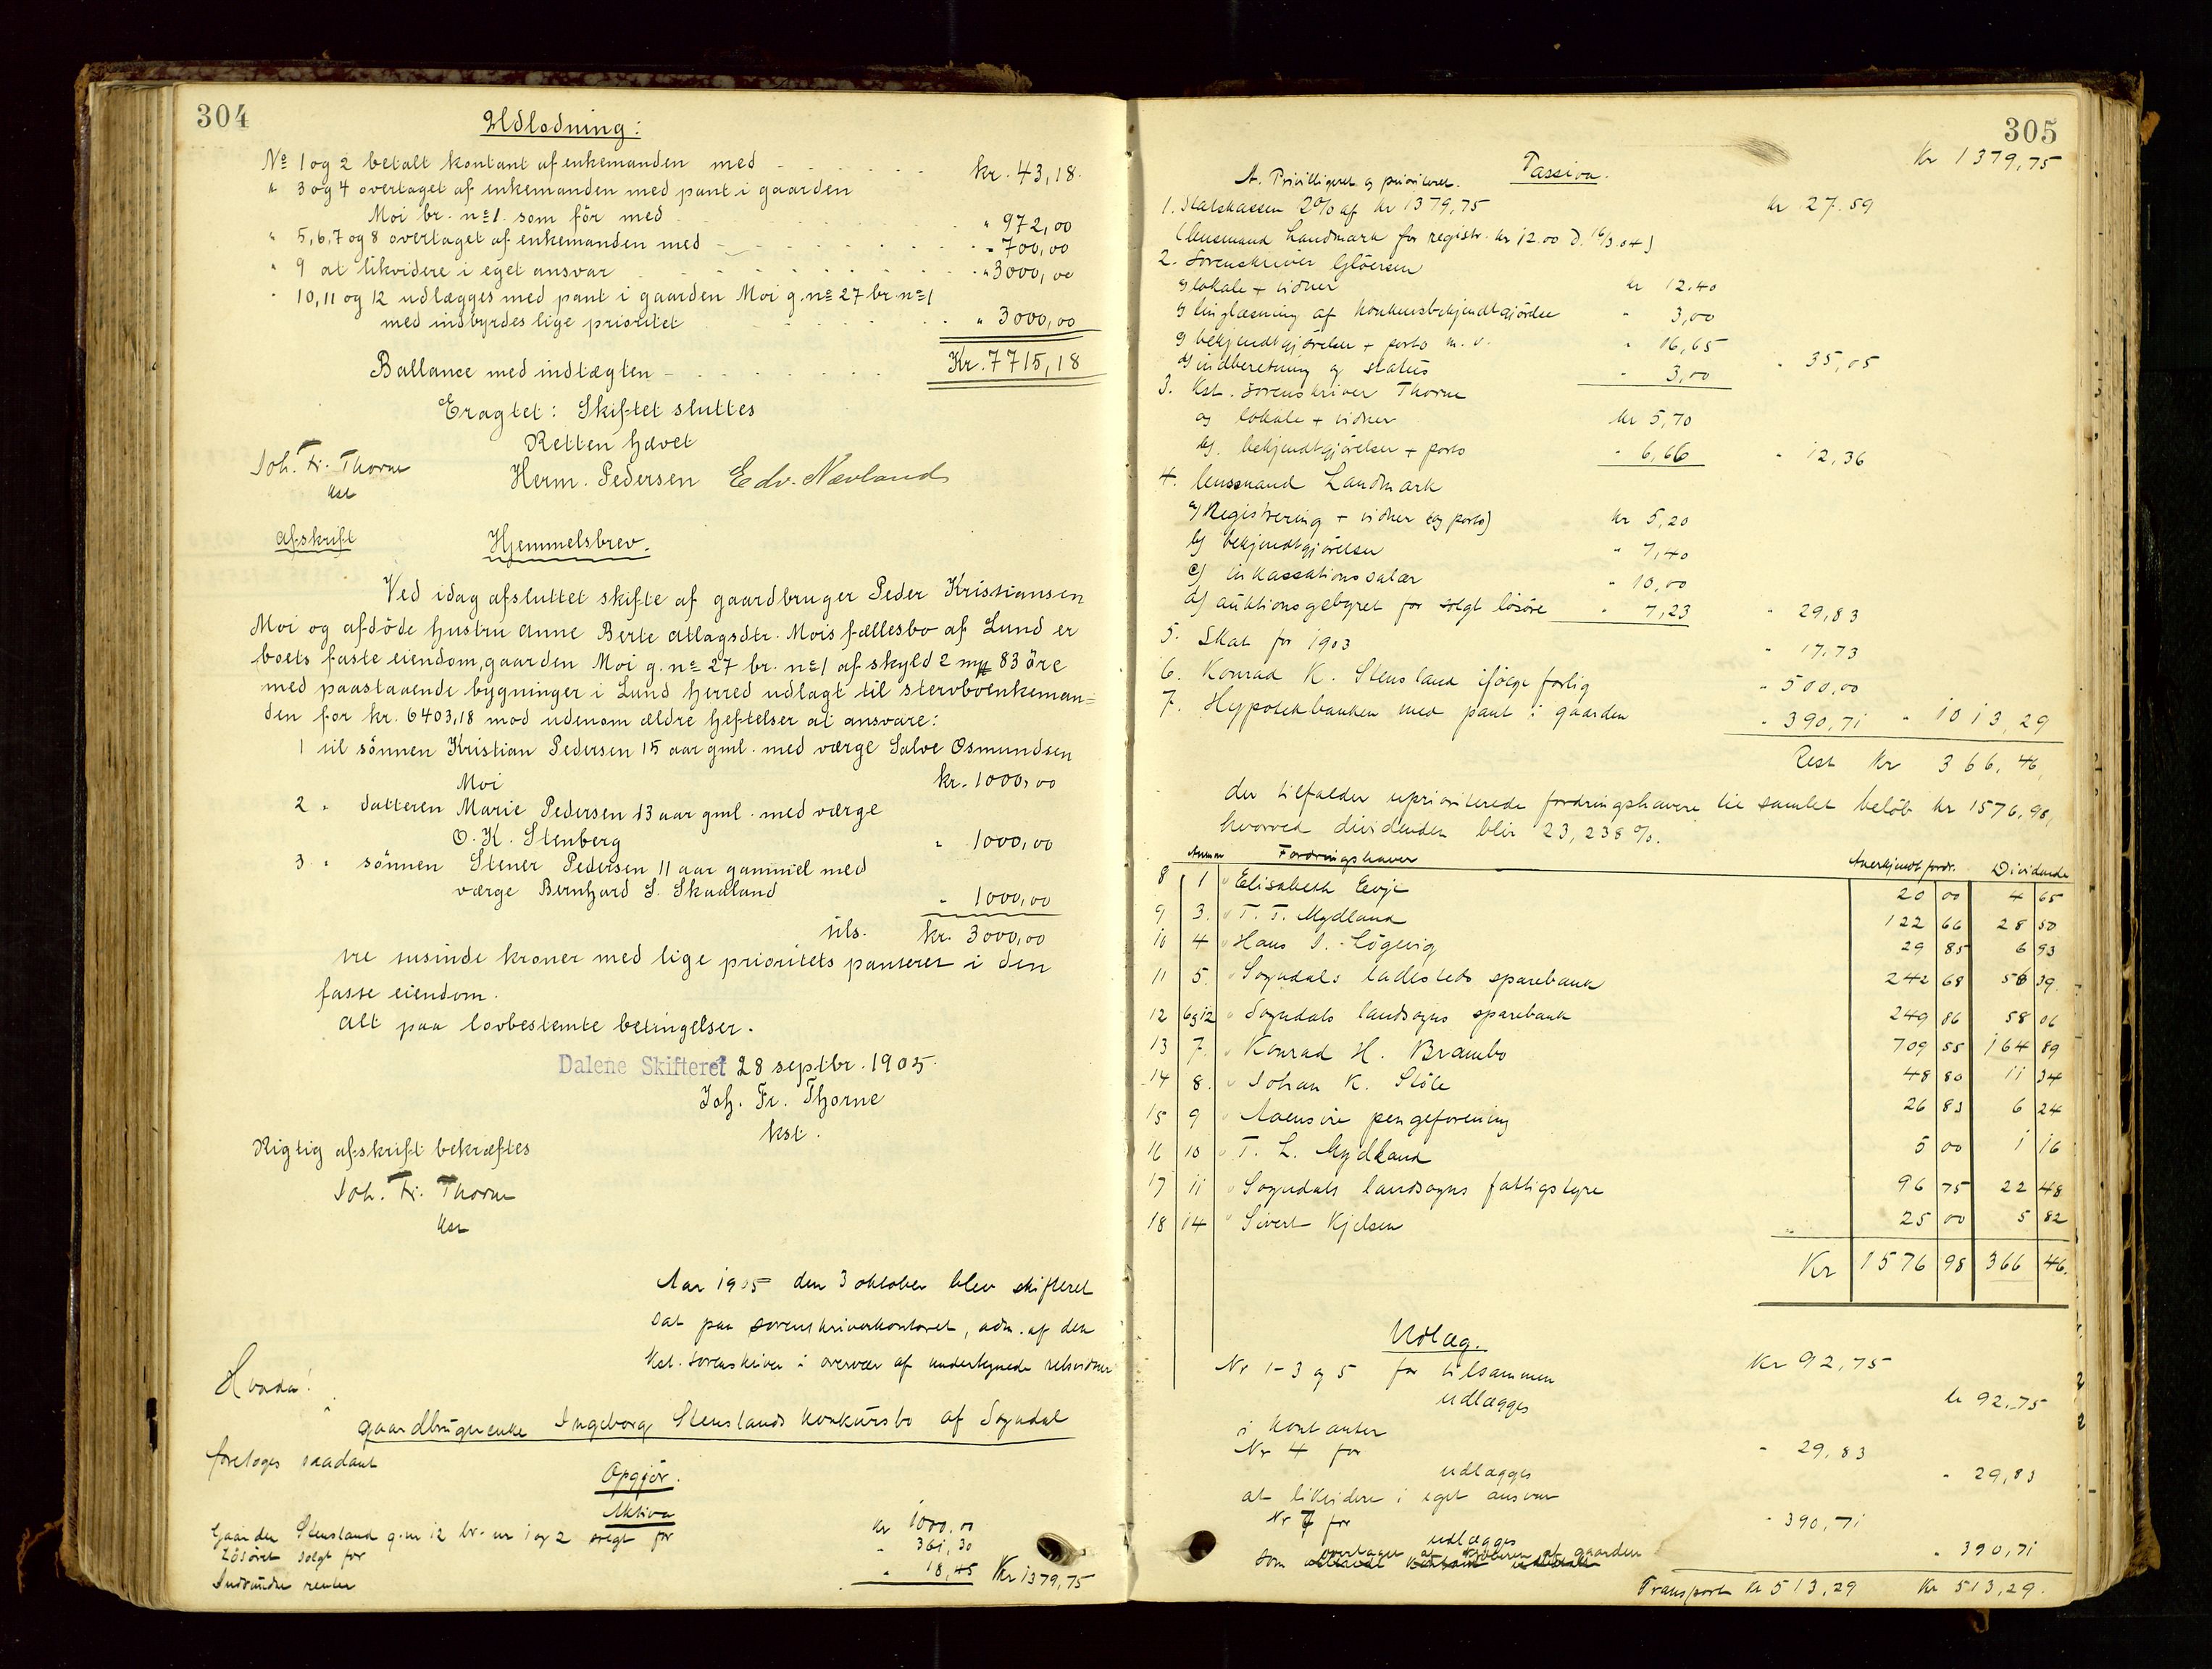 304
Udlodning:
No 1 og 2 betalt kontant af enkemanden med kr. 43,18.
" 3 og 4 overtaget af enkemanden med pant i gaarden
Moi br. no 1. som för med " 972,00
" 5,6,7 og 8 overtaget af enkemanden med " 700,00
" 9 at likvidere i eget ansvar " 3000,00
" 10,11 og 12 udlægges med pant i gaarden Moi g. no 27 br. no 1
med indbyrdes lige prioritet " 3000,00
Ballance med indtægten Kr. 7715,18
Eragtet: Skiftet sluttes
Retten hævet
Joh. Fr. Thorne Herm. Pedersen Edv. Nævland
kst
Afskrift Hjemmelsbrev.
Ved idag afsluttet skifte af gaardbruger Peder Kristiansen
Moi og afdöde hustru Anne Berte Atlagsdtr. Mois fællesbo af Lund er
boets faste eiendom, gaarden Moi g. no 27 br. no 1 af skyld 2 mk 83 öre
med paastaaende bygninger i Lund herred udlagt til stervboenkeman=
den for kr. 6403,18 mod udenom ældre heftelser at ansvare:
1 til sönnen Kristian Pedersen 15 aar gml. med værge Salve Osmundsen
Moi kr. 1000,00
2 " datteren Marie Pedersen 13 aar gml. med værge
O. K. Stenberg " 1000,00
3 " sönnen Stener Pedersen 11 aar gammel med
værge Bernhard S. Skaaland " 1000,00
tils. kr. 3000,00
tre tusinde kroner med lige prioritets panteret i den
faste eiendom.
Alt paa lovbestemte betingelser.
Dalene Skifteret 28 septbr. 1905.
Joh. Fr. Thorne
kst.
Rigtig afskrift bekræftes
Joh. Fr. Thorne
kst
Aar 1905 den 3 oktober blev skifteret
sat paa sorenskriverkontoret, adm. af den
kst. sorenskriver i overvær af undertegnede retsvidner
Hvorda!
gaardbrugerenke Ingeborg Stenslands konkursbo af Sogndal
foretoges saadant
Opgjör.
Aktiva
Gaarden Stensland g.nr 12 br.nr 1 og 2 solgt for kr 1000.00
Lösöret solgt for " 361,30
Indvundne renter " 18,45 Kr 1379,75
305
Passiva. Kr 1379,75
A. Privilligeret og prioriteret.
1. Statskassen 2% af kr 1379,75 kr 27.59
(lensmand Landmark for registr. kr 12.00 d. 16/3.04)
2. Sorenskriver Glöersen
a) lokale + vidner kr 12.40
b) tinglæsning af konkursbekjendtgjörelse " 3,00
c) bekjendtgjörelser + porto m.v. " 16,65
d) indberetning og status " 3,00 " 35,05
3. Kst. sorenskriver Thorne
a) lokale + vidner kr 5,70
b) bekjendtgjörelser + porto " 6,66 " 12,36
4. lensmand Landmark
a) Registrering + vidner (og porto) kr 5,20
b) bekjendtgjörelser " 7,40
c) inkassationssalær " 10,00
d) auktionsgebyret for solgt lösöre " 7,23 " 29,83
5. Skat for 1903 " 17.73
6. Konrad K. Stensland ifölge forlig " 500,00
7. Hypotekbanken med pant i gaarden " 390,71 " 1013,29
Rest Kr 366,46,
der tilfalder uprioriterede fordringshavere til samlet belöb kr 1576,98,
hvorved dividenden blir 23,238%.
Anm Fordringshaver Anerkjendt fordr. Dividende
8 1 " Elisabeth Eevje 20 00 4 65
9 3. " T. T. Mydland 122 66 28 50
10 4 " Hans I. Lögevig 29 85 6 93
11 5. " Sogndals ladesteds sparebank 242 68 56 39
12 6 og 12 " Sogndals landsogns sparebank 249 86 58 06
13 7. " Konrad H. Brambo 709 55 164 89
14 8. " Johan K. Stöle 48 80 11 34
15 9 " pengeforening 26 83 6 24
16 10 " T. L. Mydland 5 00 1 16
17 11 " Sogndals landsogns fattigstyre 96 75 22 48
18 14 " Sivert Kjelsen 25 00 5 82
Kr 1576 98 366 46.
Udlæg.
Nr 1-3 og 5 for tilsammen Kr 92,75
udlægges kr 92,75
i kontanter
Nr 4 for " 29,83
udlægges " 29,83
at likvidere i eget ansvar
Nr 7 for " 390,71
udlægges
som overtaget af köberen af gaarden " 390,71
Transport Kr 513,29 Kr 513,29.